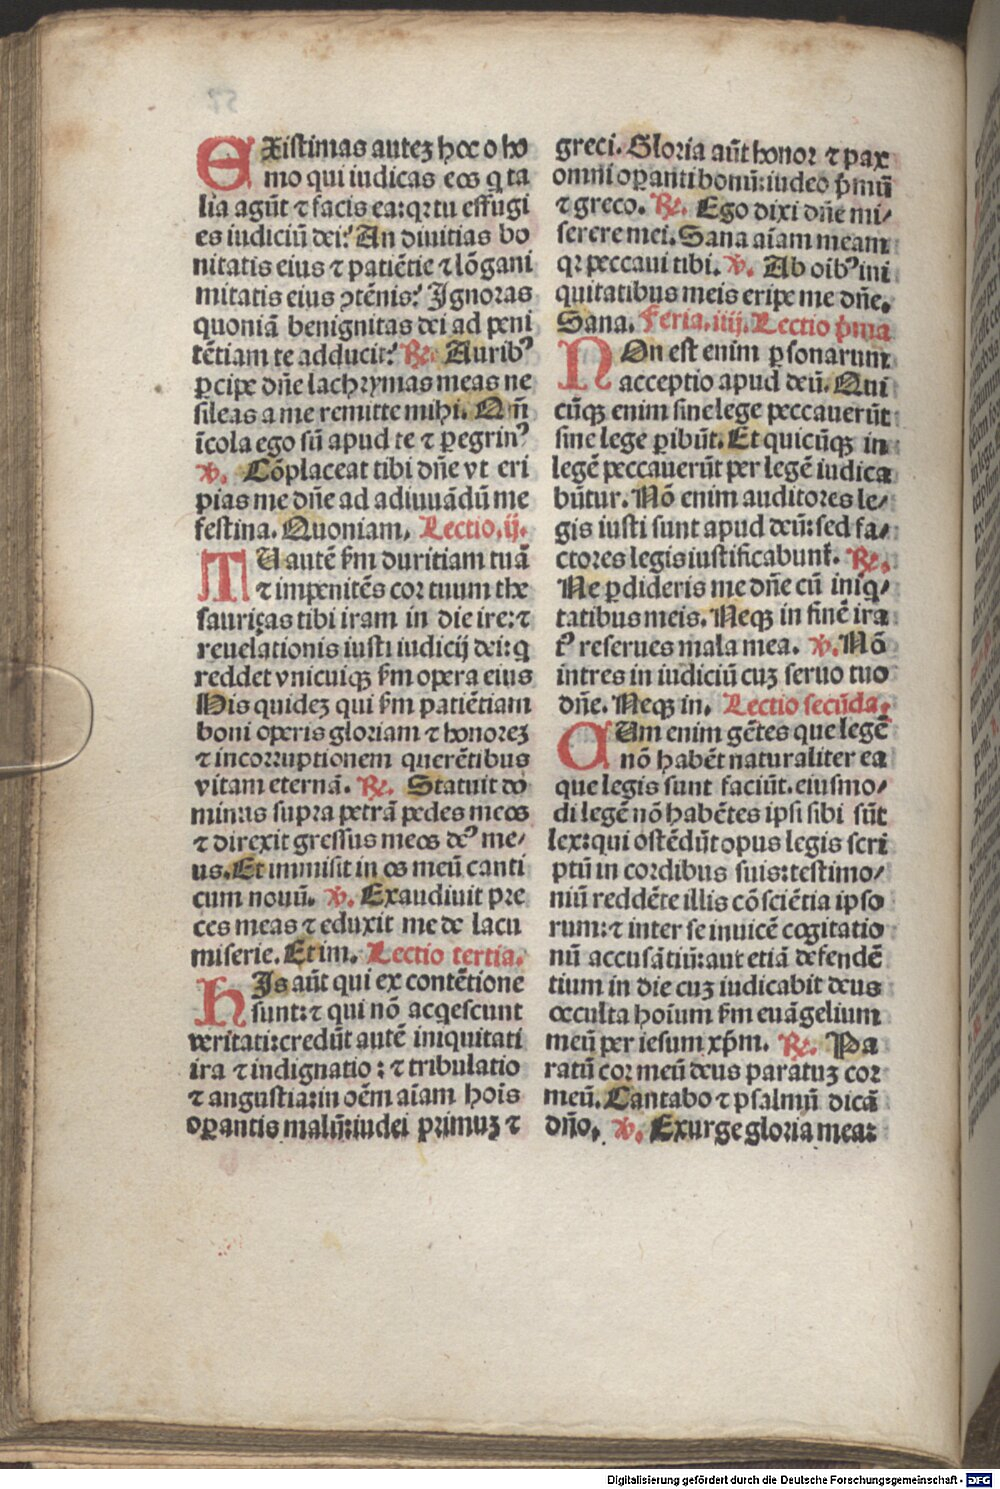 EXistimas auteʒ hoc o ho
mo qui iudicas eos q̇ ta
lia agūt ⁊ facis ea: qꝛ tu effugi
es iudiciū dei? An diuitias bo
nitatis eius ⁊ patiētie ⁊ lōgani
mitatis eius ↄtēnis? Ignoras
quoniā benignitas dei ad peni
tētiam te adducit? ℞. Auribꝰ
ꝑcipe dn̄e lachrymas meas ne
sileas a me remitte mihi. Qn̄
īcola ego sū apud te ⁊ ꝑegrinꝰ
℣. Cōplaceat tibi dn̄e vt eri
pias me dn̄e ad adiuuādū me
festina. Quoniam. Lectio. ij.
TU autē ẜm duritiam tuā
⁊ impenitēs cor tuum the
saurizas tibi iram in die ire: ⁊
reuelationis iusti iudicij dei: q̇
reddet vnicuiqꝫ ẜm opera eius
His quideʒ qui ẜm patiētiam
boni operis gloriam ⁊ honoreʒ
⁊ incorruptionem querētibus
vitam eternā. ℞. Statuit do
minus supra petrā pedes meos
⁊ direxit gressus meos deꝰ me/
us. Et immisit in os meū canti
cum nouū. ℣. Exaudiuit pre
ces meas ⁊ eduxit me de lacu
miserie. Et im. Lectio tertia.
HIs aūt qui ex contētione
sunt: ⁊ qui nō acq̇escunt
veritati: credūt autē iniquitati
ira ⁊ indignatio: ⁊ tribulatio
⁊ angustia: in oēm aīam hoīs
oꝑantis malū: iudei primuʒ ⁊
greci. Gloria aūt honor ⁊ pax
omni oꝑanti bonū: iudeo p̄mū
⁊ greco. ℞. Ego dixi dn̄e mi/
serere mei. Sana aīam meam
qꝛ peccaui tibi. ℣. Ab oībꝰ ini
quitatibus meis eripe me dn̄e.
Sana. Feria. iiij. Lectio p̄ma
NOn est enim ꝑsonarum
acceptio apud deū. Qui
cūqꝫ enim sine lege peccauerūt
sine lege ꝑibūt. Et quicūqꝫ in
legē peccauerūt per legē iudica
būtur. Nō enim auditores le/
gis iusti sunt apud deū: sed fa/
ctores legis iustificabunt̉. ℞.
Ne ꝑdideris me dn̄e cū iniq̇/
tatibus meis. Neqꝫ in finē ira
tꝰ reserues mala mea. ℣. Nō
intres in iudiciū cuʒ seruo tuo
dn̄e. Neqꝫ in. Lectio secūda.
CUm enim gētes que legē
nō habēt naturaliter ea
que legis sunt faciūt. eiusmo/
di legē nō habētes ipsi sibi sūt
lex: qui ostēdūt opus legis scri
ptū in cordibus suis: testimo/
niū reddēte illis cōsciētia ipso
rum: ⁊ inter se inuicē cogitatio
nū accusātiū: aut etiā defendē
tium in die cuʒ iudicabit deus
occulta hoīum ẜm euāgelium
meū per iesum xp̄m. ℞. Pa
ratū cor meū deus paratuʒ cor
meū. Cantabo ⁊ psalmū dicā
dn̄o. ℣. Exurge gloria mea:
Digitalisierung gefördert durch die Deutsche Forschungsgemeinschaft - DFG